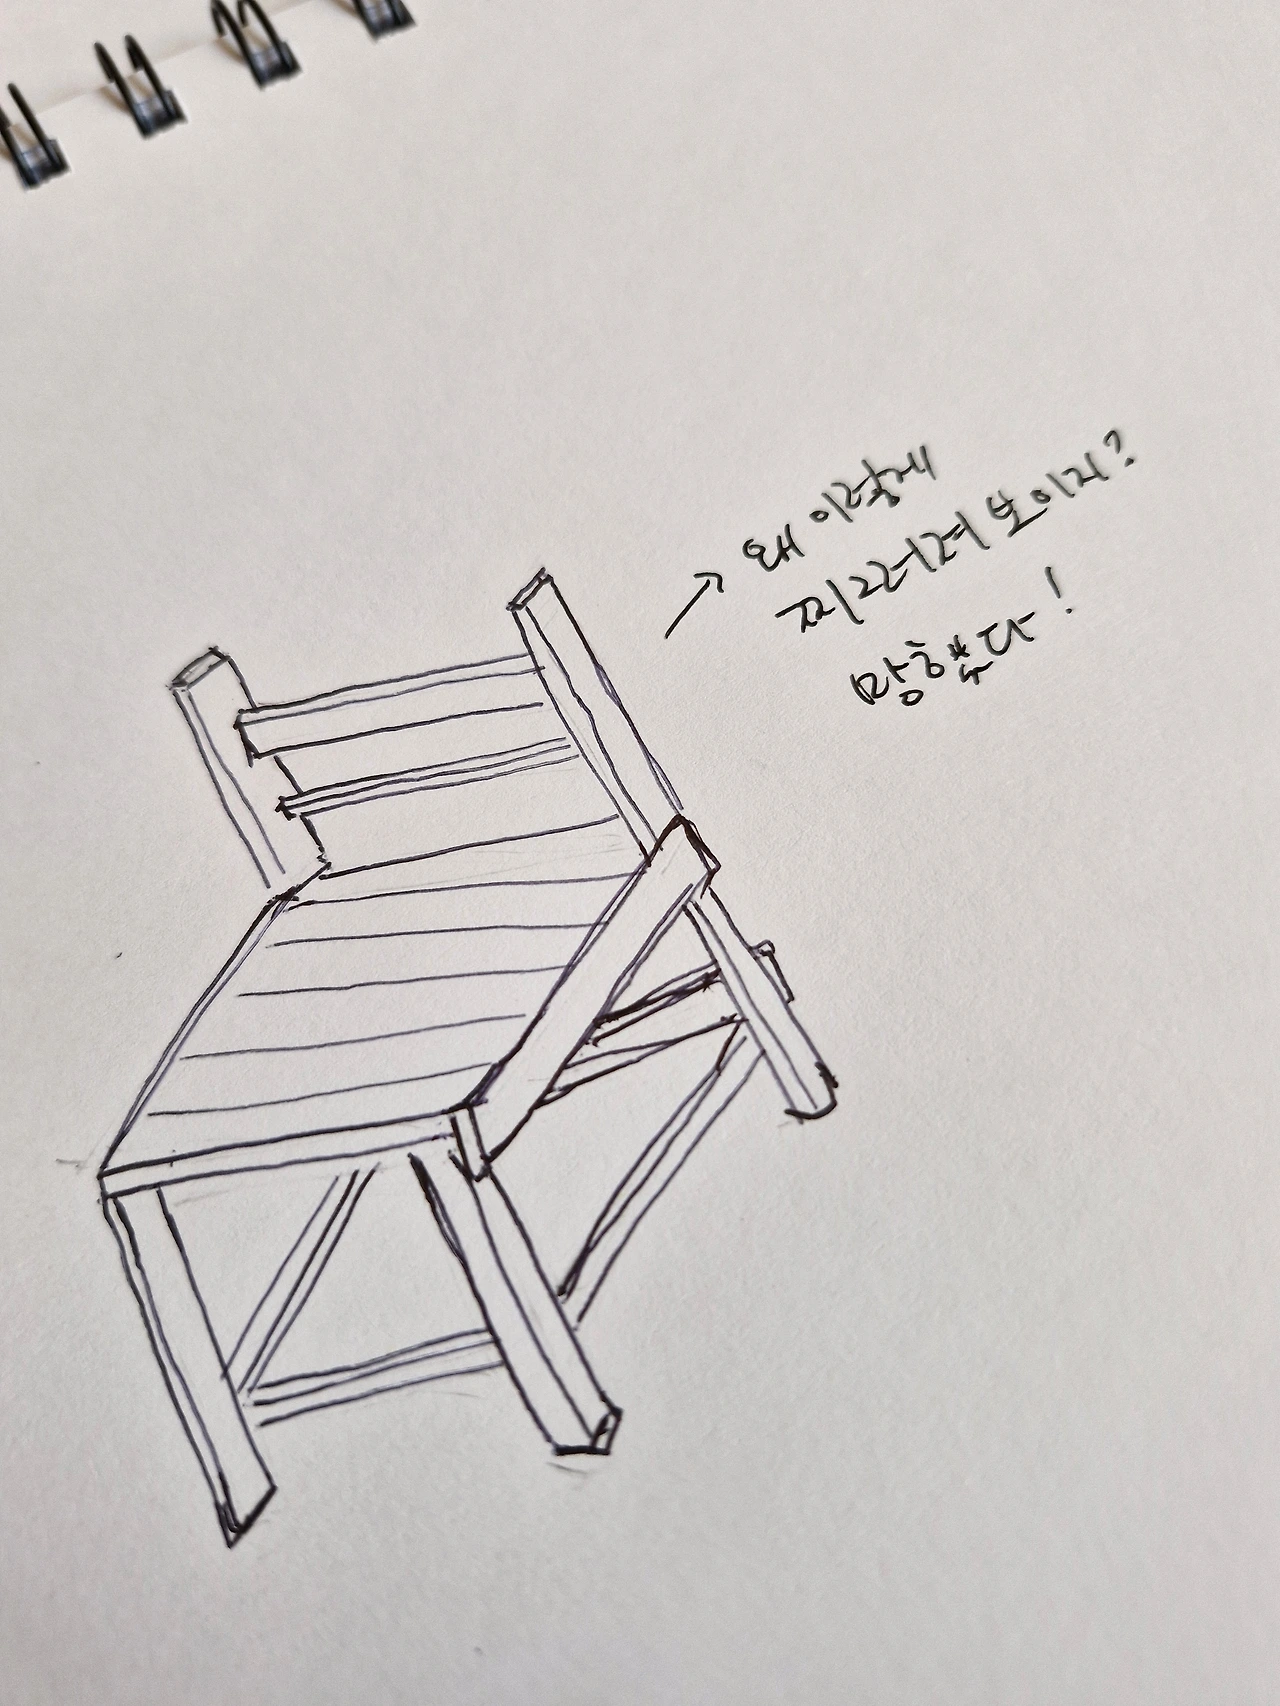 왜 이렇게
찌그러져 보이지?
망했다!